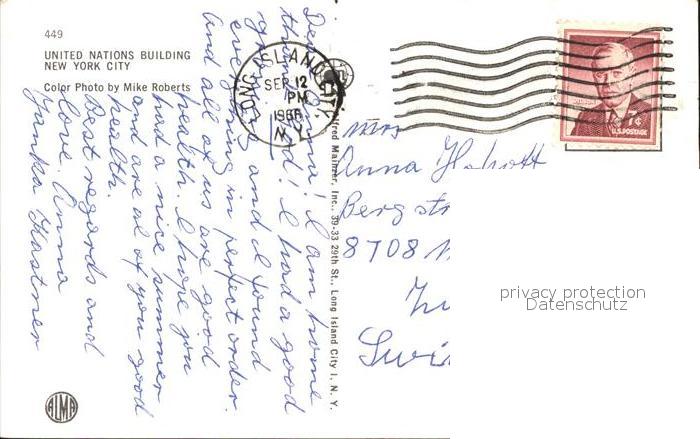 449
UNITED NATIONS BUILDING
NEW YORK CITY
Color Photo by Mike Roberts
Dear Anna! I am home
thank God! I had a good
and I found
everything in perfect order.
And all of us are good
health. I hope you
had a nice summer
and are al of you good
health.
Best regards and
love. Anna
Yanka Kastner
ALMA
Alfred Mainzer, Inc., 39-33 29th St., Long Island City 1, N. Y.
LONG ISLAND CITY
SEP 12
PM
1966
N.Y.
7¢
U.S. POSTAGE
Mrs
Anna
Berg str
8708
privacy protection
Datenschutz